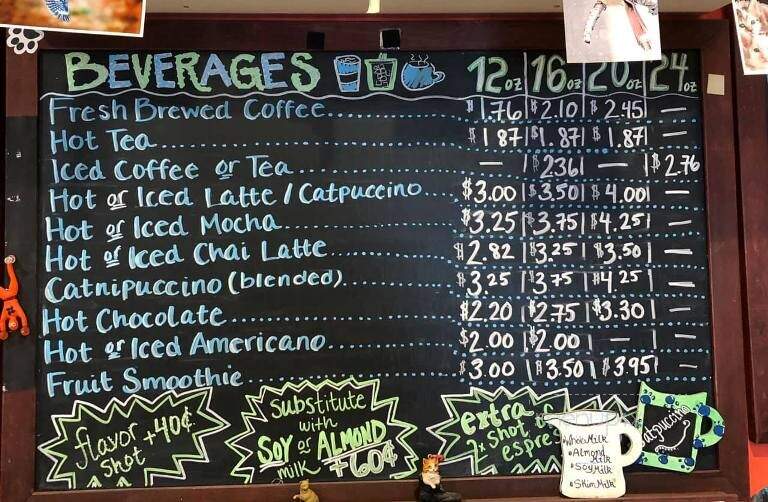 BEVERAGES 12oz 16oz 20oz 24oz
Fresh Brewed Coffee $1.76 $2.10 $2.45 —
Hot Tea $1.87 $1.87 $1.87 —
Iced Coffee or Tea — $2.36 — $2.76
Hot or Iced Latte / Catpuccino $3.00 $3.50 $4.00 —
Hot or Iced Mocha $3.25 $3.75 $4.25 —
Hot or Iced Chai Latte $2.82 $3.25 $3.50 —
Catnipuccino (blended) $3.25 $3.75 $4.25 —
Hot Chocolate $2.20 $2.75 $3.30 —
Hot or Iced Americano $2.00 $2.00 — —
Fruit Smoothie $3.00 $3.50 $3.95 —
flavor
shot +40¢
Substitute
with
SOY or ALMOND
milk +60¢
extra
shot of
espre
Whole Milk
Almond
Milk
Soy Milk
Skim Milk
Catpuccino